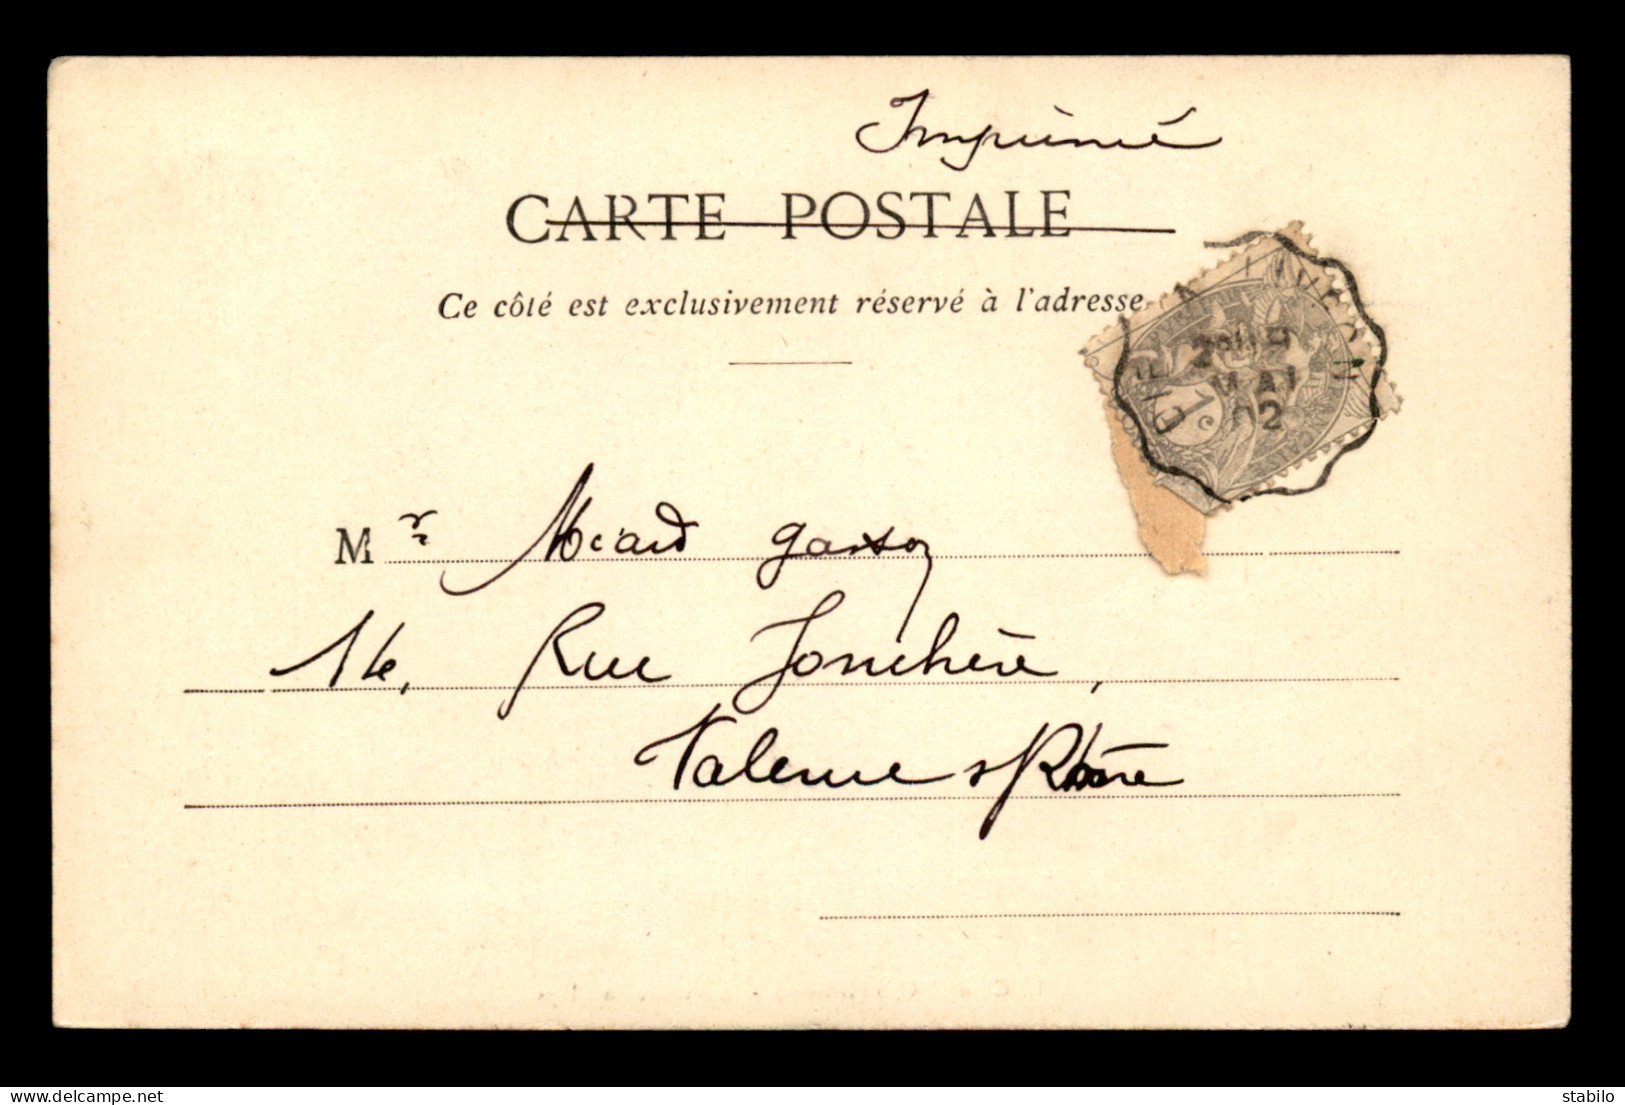 Imprimé
CARTE POSTALE
Ce côté est exclusivement réservé à l'adresse
MAI
02
1c
Mr Miard gaston
14, Rue Jonchère,
Valence s/Rhône
delcampe.net
stabilo